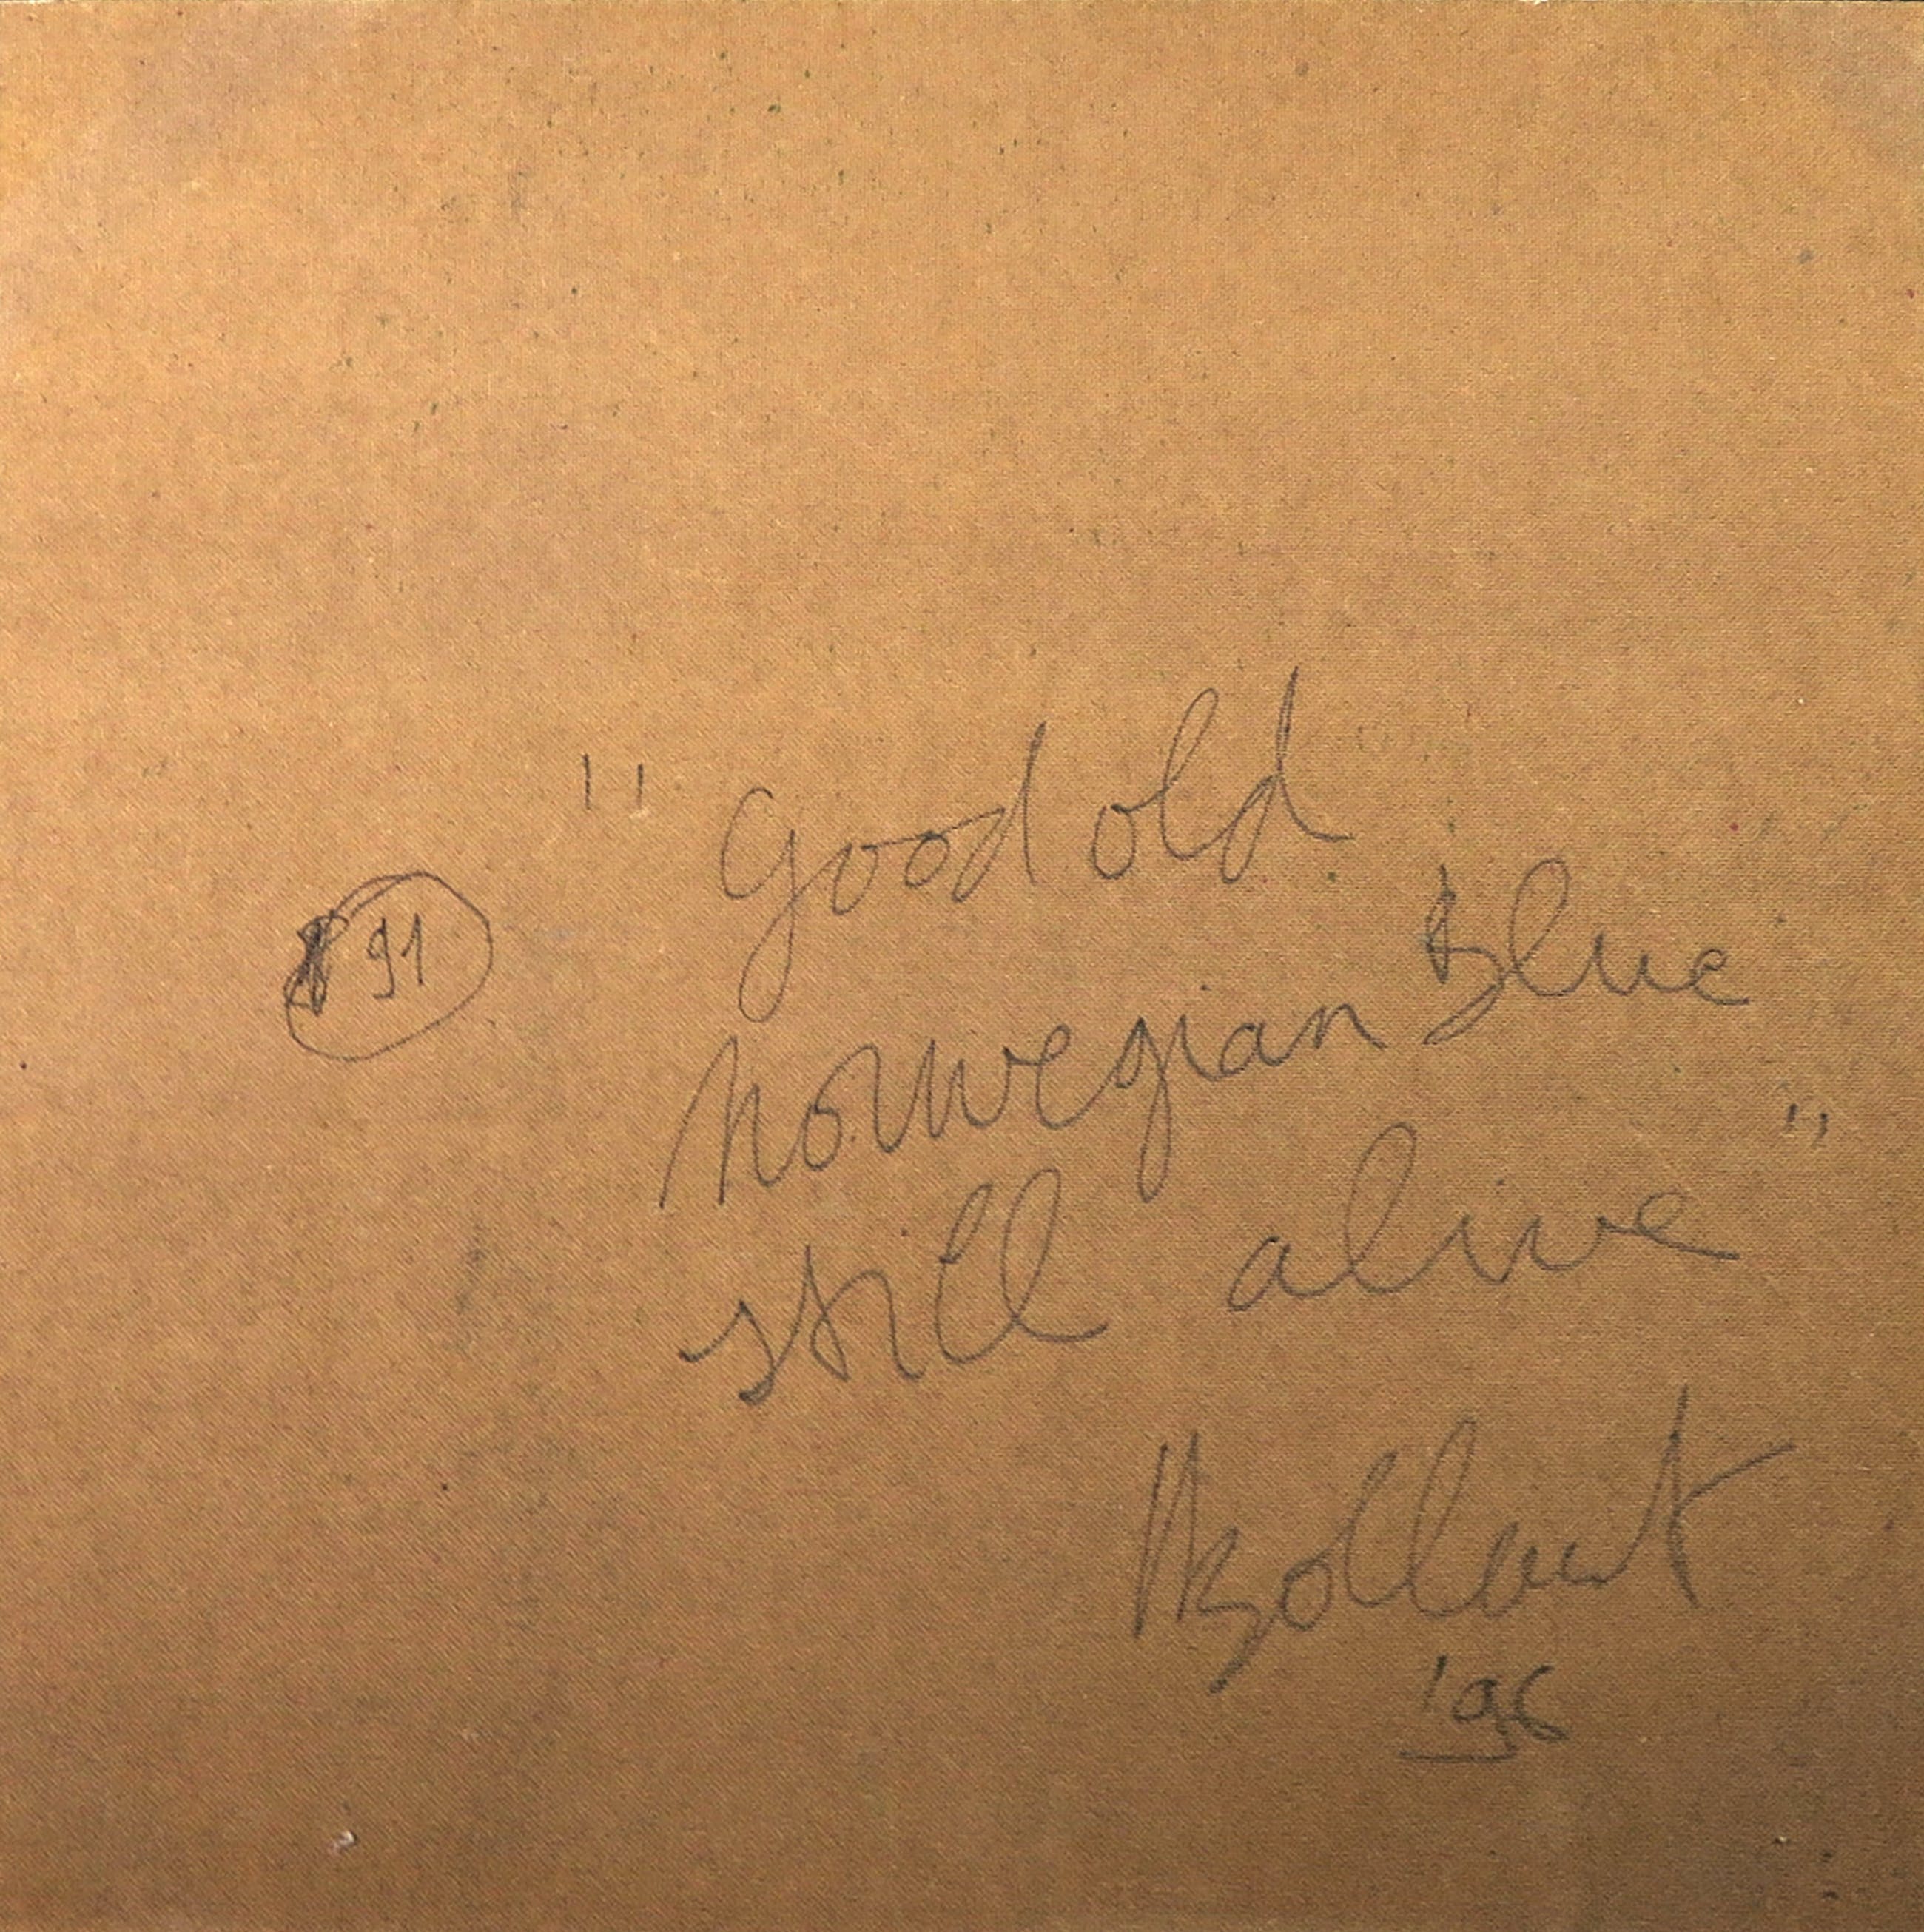 " Good old
91
Norwegian Blue
still alive "
Bollaert
'96